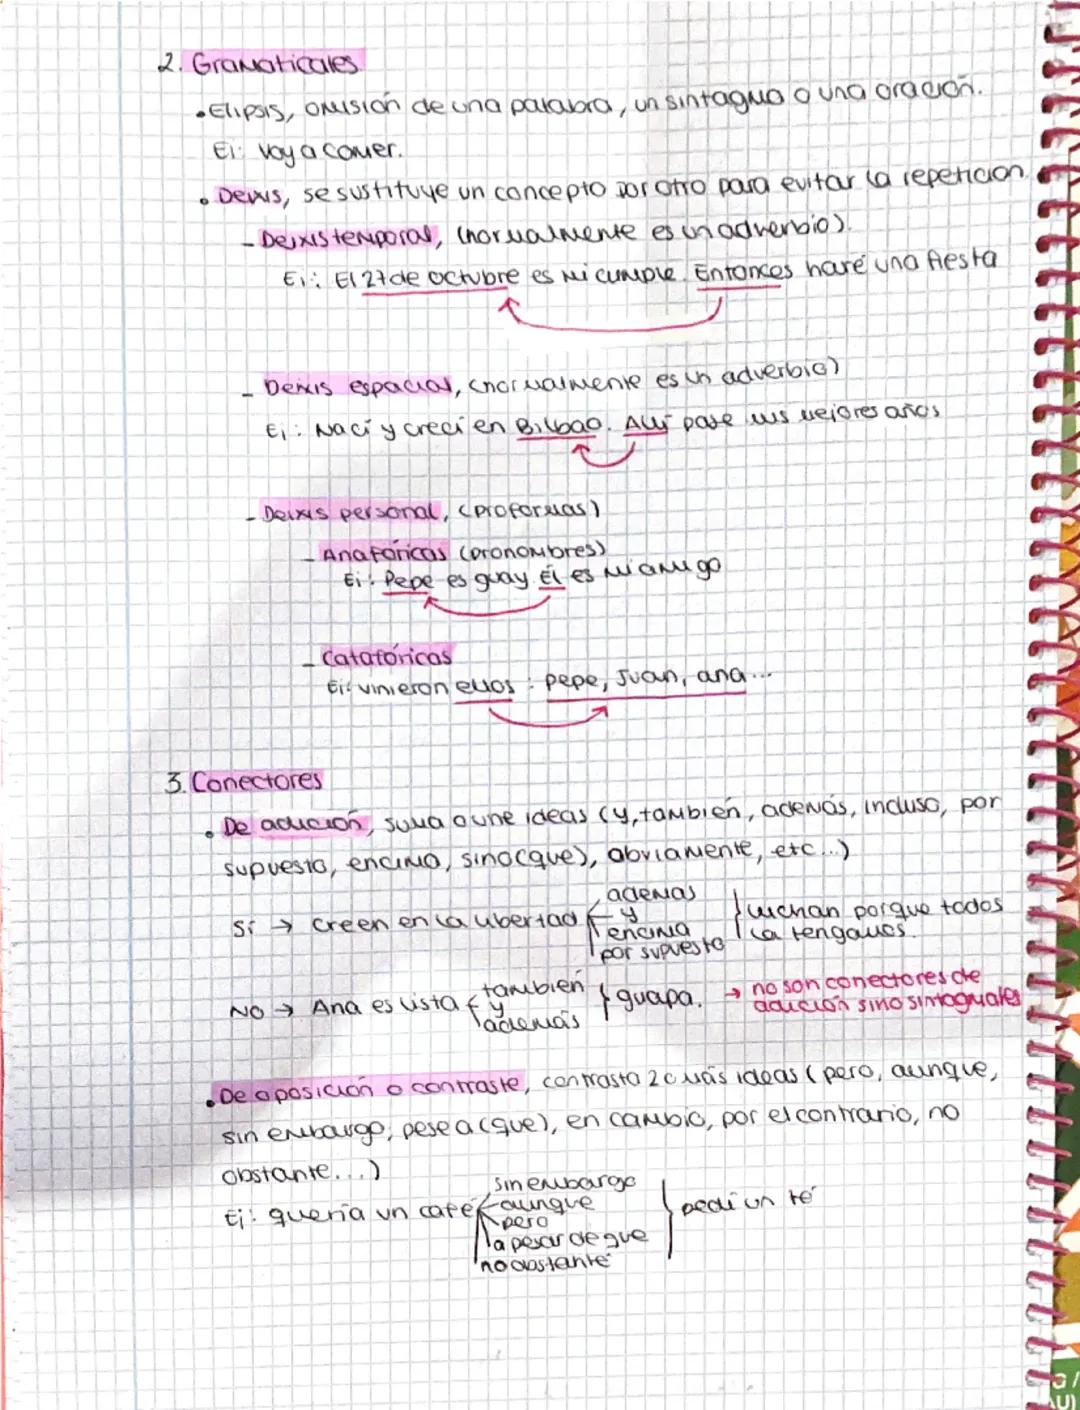 2. Gramaticales
• Elipsis, omisión de una palabra, un sintagma o una oración.
Ej: Voy a comer.
• Deixis, se sustituye un concepto por otro para evitar la repeticion.
- Deixis temporal, (normalmente es un adverbio).
Ej: El 27 de octubre es mi cumple. Entonces haré una fiesta
- Deixis espacial, (normalmente es un adverbio)
Ej: Nací y crecí en Bilbao. Allí pase mis mejores años
- Deixis personal, (proformas)
- Anafóricas (pronombres)
Ej: Pepe es guay. Él es mi amigo
- Catafóricas
Ej: vinieron ellos : pepe, Juan, ana...
3. Conectores
• De adición, suma o une ideas (y, también, además, incluso, por
supuesto, encima, sino(que), obviamente, etc...)
Sí → creen en la libertad
ademas
y
encima
por supuesto
luchan porque todos
la tengamos.
NO → Ana es lista
también
y
además
guapa.
→ no son conectores de
adición sino sintagmales
• De oposición o contraste, contrasta 2 o más ideas (pero, aunque,
sin embargo, pese a (que), en cambio, por el contrario, no
obstante...)
Ej: quería un café
sin embargo
aunque
pero
a pesar de que
no obstante
pedí un té
G/
AU)